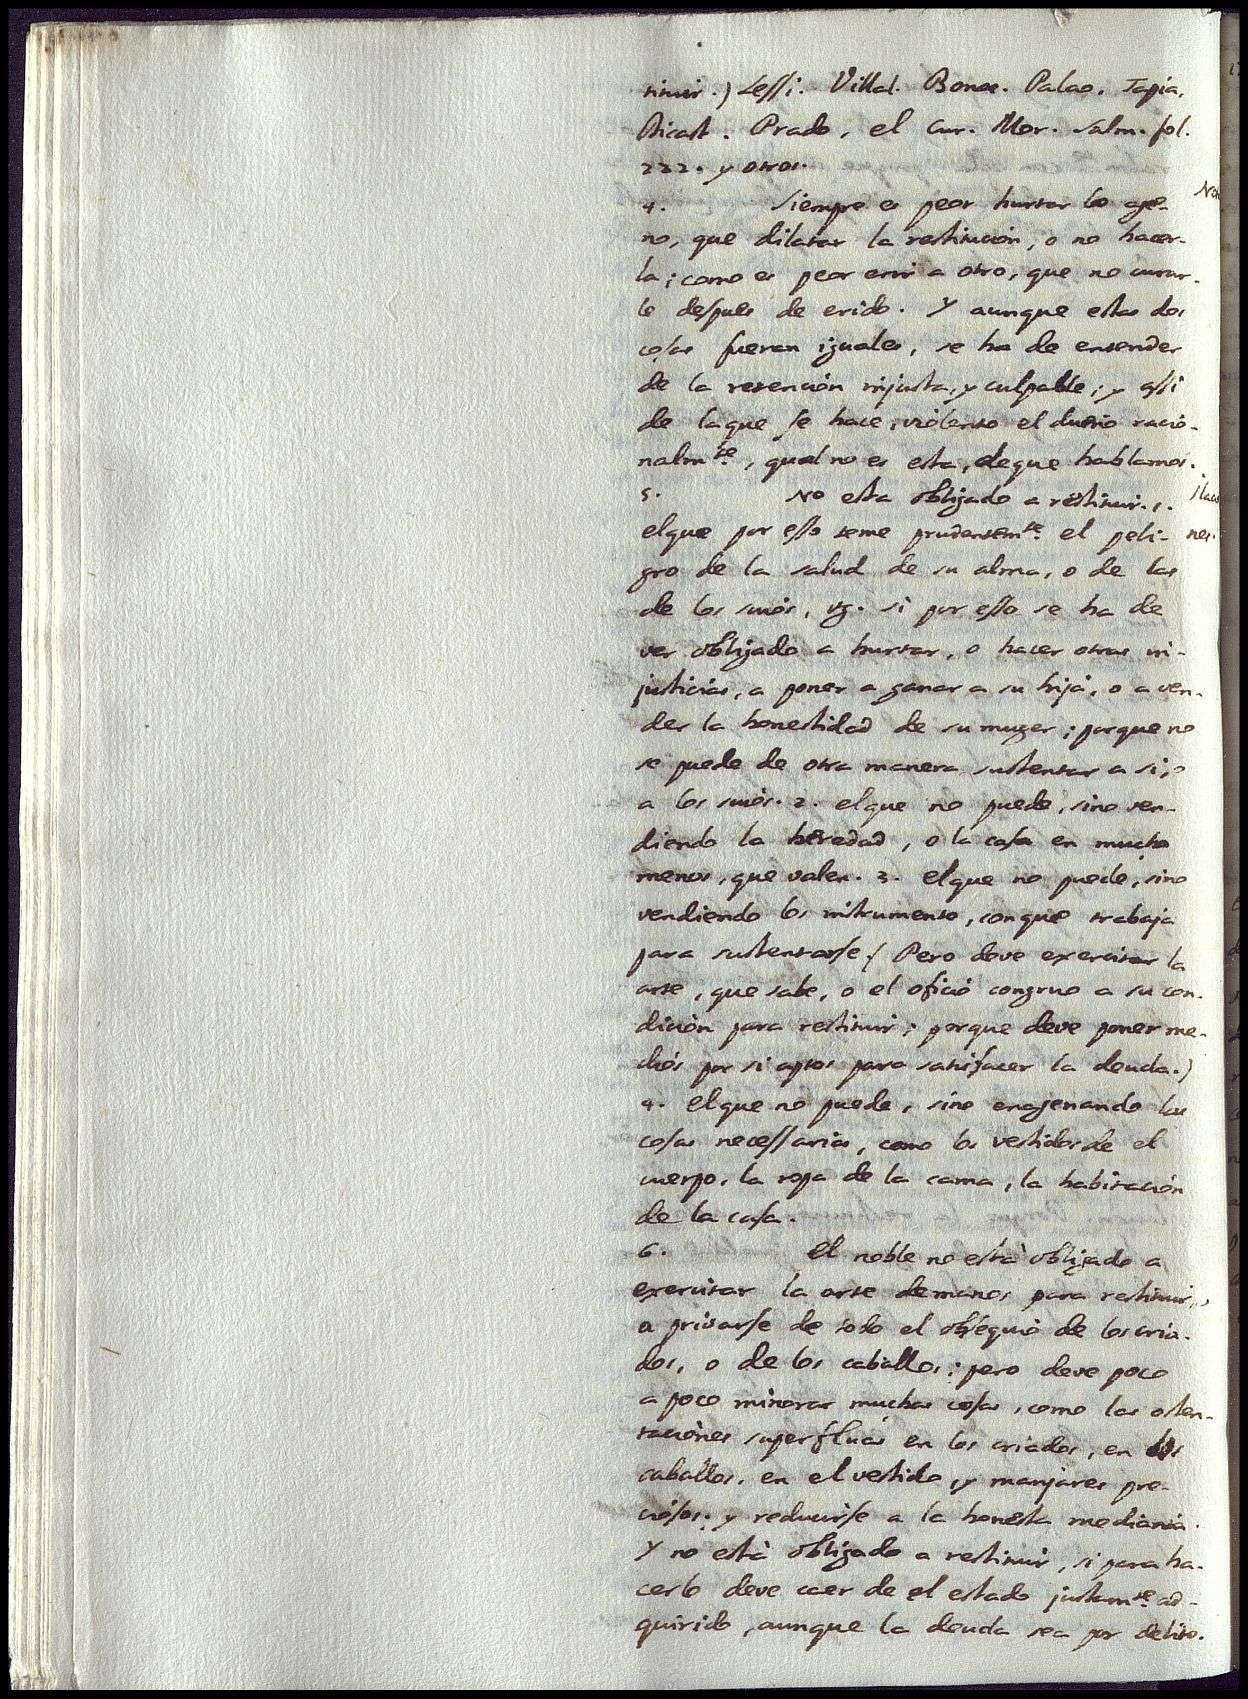 tituir.) Lessi. Villal. Bonac. Palao. Tapia.
Dicast. Prado, el Cur. Mor. Salm. fol.
222. y otros.
4. Siempre es peor hurtar lo age-
no, que dilatar la restitución, o no hacer-
la; como es peor erir a otro, que no curar-
le despues de erido. Y aunque estas dos
cosas fueran iguales, se ha de entender
de la retención injusta, y culpable; y assi
de la que se hace, violento el dueño racio-
nalmte, qual no es esta, de que hablamos.
5. No esta obligado a restituir. 1.
el que por esso teme prudentemte el peli-
gro de la salud de su alma, o de las
de los suios, vg. si por esso se ha de
ver obligado a hurtar, o hacer otras in-
justicias, a poner a ganar a su hija, o a ven-
der la honestidad de su muger; porque no
se puede de otra manera sustentar a si, o
a los suios. 2. el que no puede, sino ven-
diendo la heredad, o la casa en mucho
menos, que valen. 3. el que no puede, sino
vendiendo los instrumentos, con que trabaja
para sustentarse. (Pero deve exercitar la
arte, que sabe, o el oficio congruo a su con-
dición para restituir; porque deve poner me-
dios por si aptos para satisfacer la deuda.)
4. el que no puede, sino enagenando las
cosas necessarias, como los vestidos de el
cuerpo, la ropa de la cama, la habitación
de la casa.
6. El noble no está obligado a
exercitar la arte de manos para restituir,
o privarse de todo el obsequio de los cria-
dos, o de los caballos; pero deve poco
a poco minorar muchas cosas, como las osten-
taciones superfluas en los criados, en los
caballos, en el vestido, y manjares pre-
ciosos; y reducirse a la honesta mediania.
Y no está obligado a restituir, si para ha-
cerlo deve caer de el estado justamte ad-
quirido, aunque la deuda sea por delito.